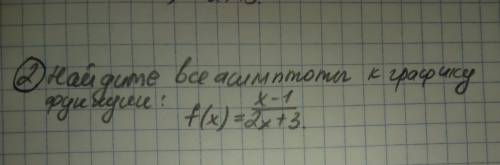 ② Найдите все асимптоты к графику
функции:
f(x) = x-1/2x+3.